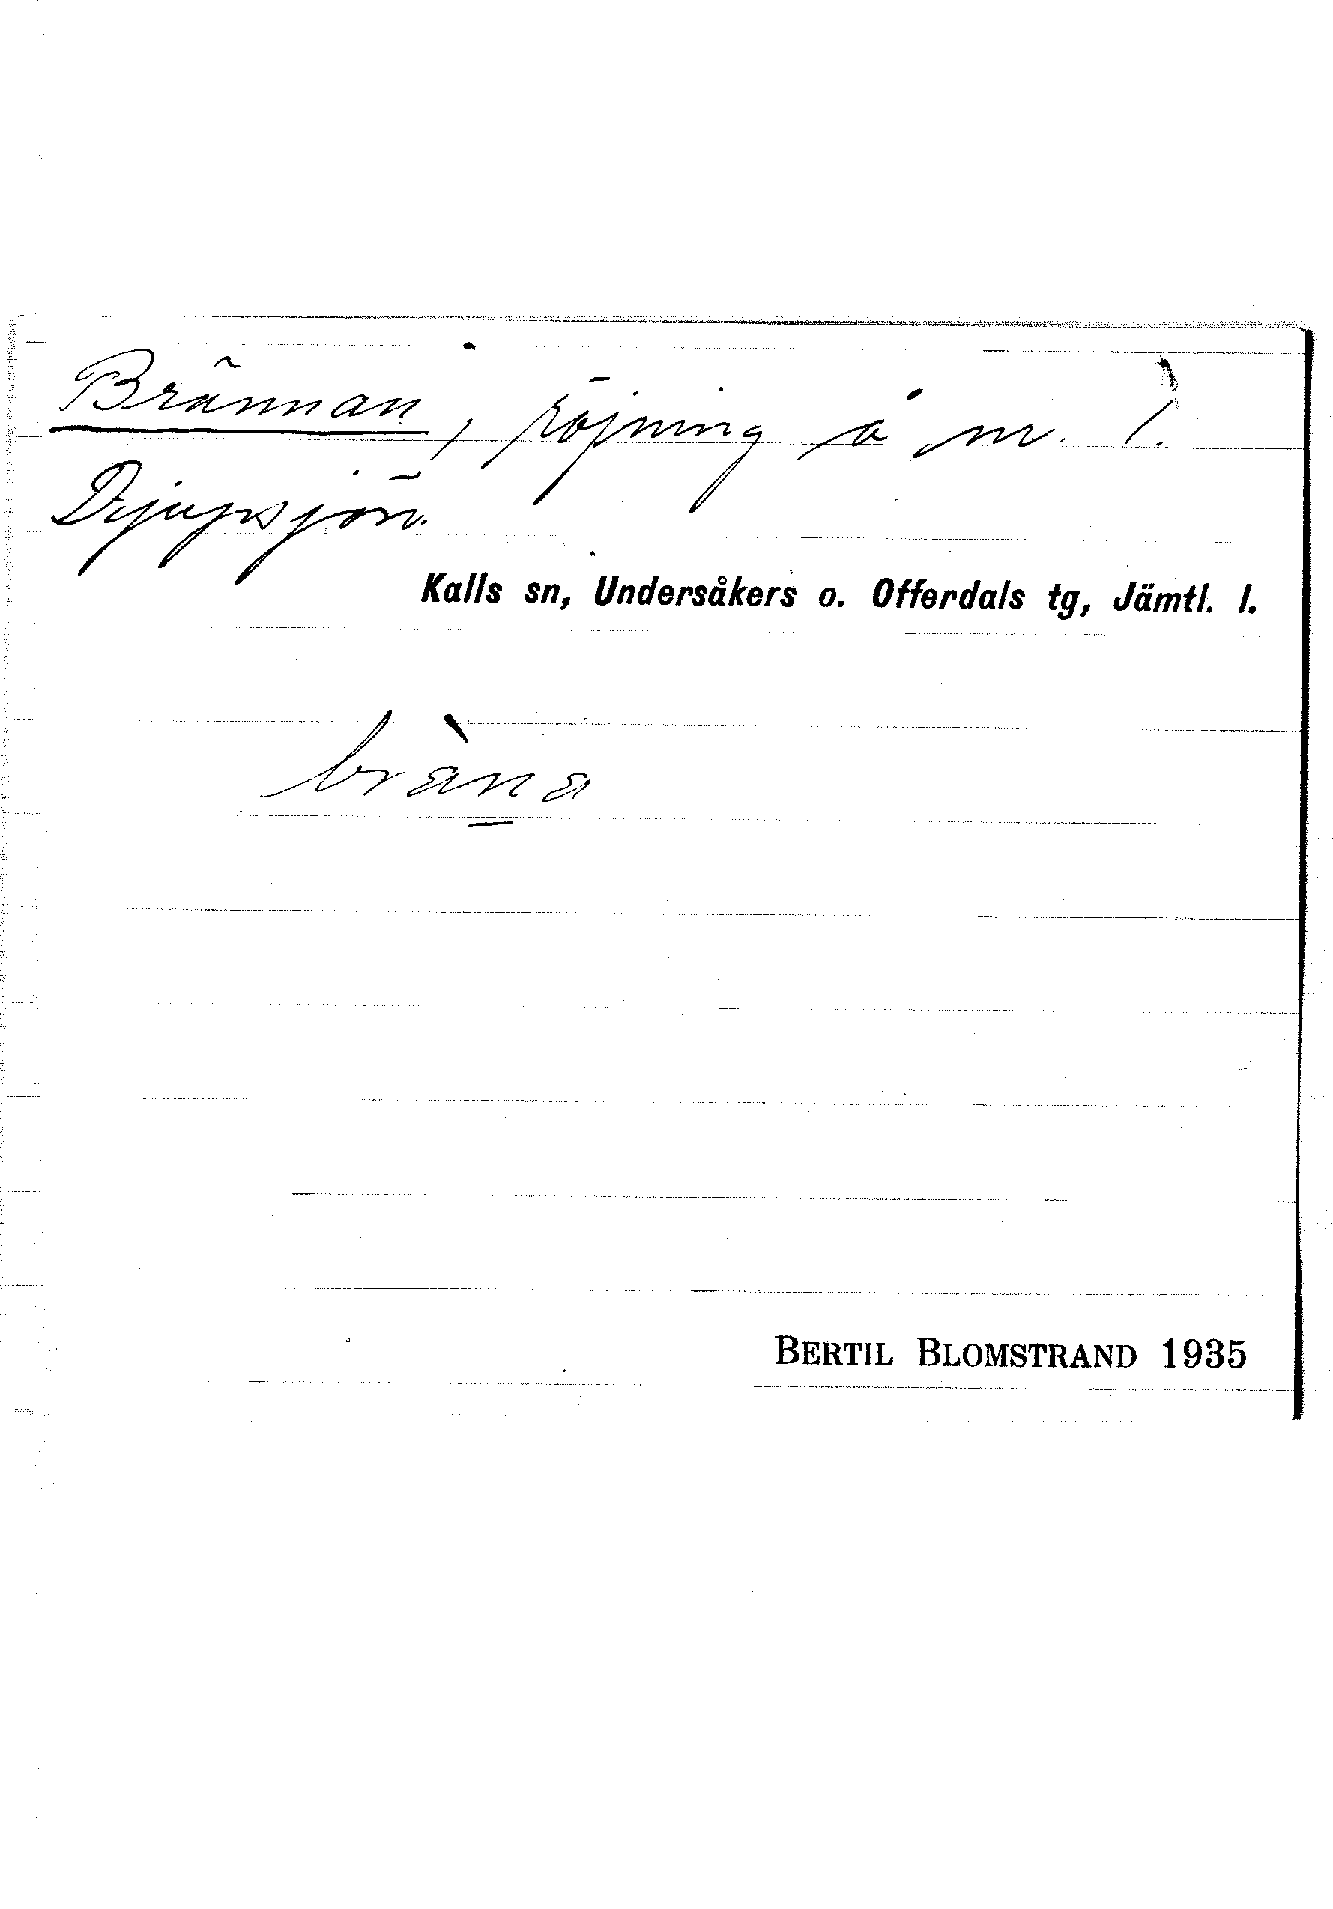 Brännan, röjning å nr. 1.
Djupsjön.
Kalls sn, Undersåkers o. Offerdals tg, Jämtl. l.
brä̀n̲a
BERTIL BLOMSTRAND 1935